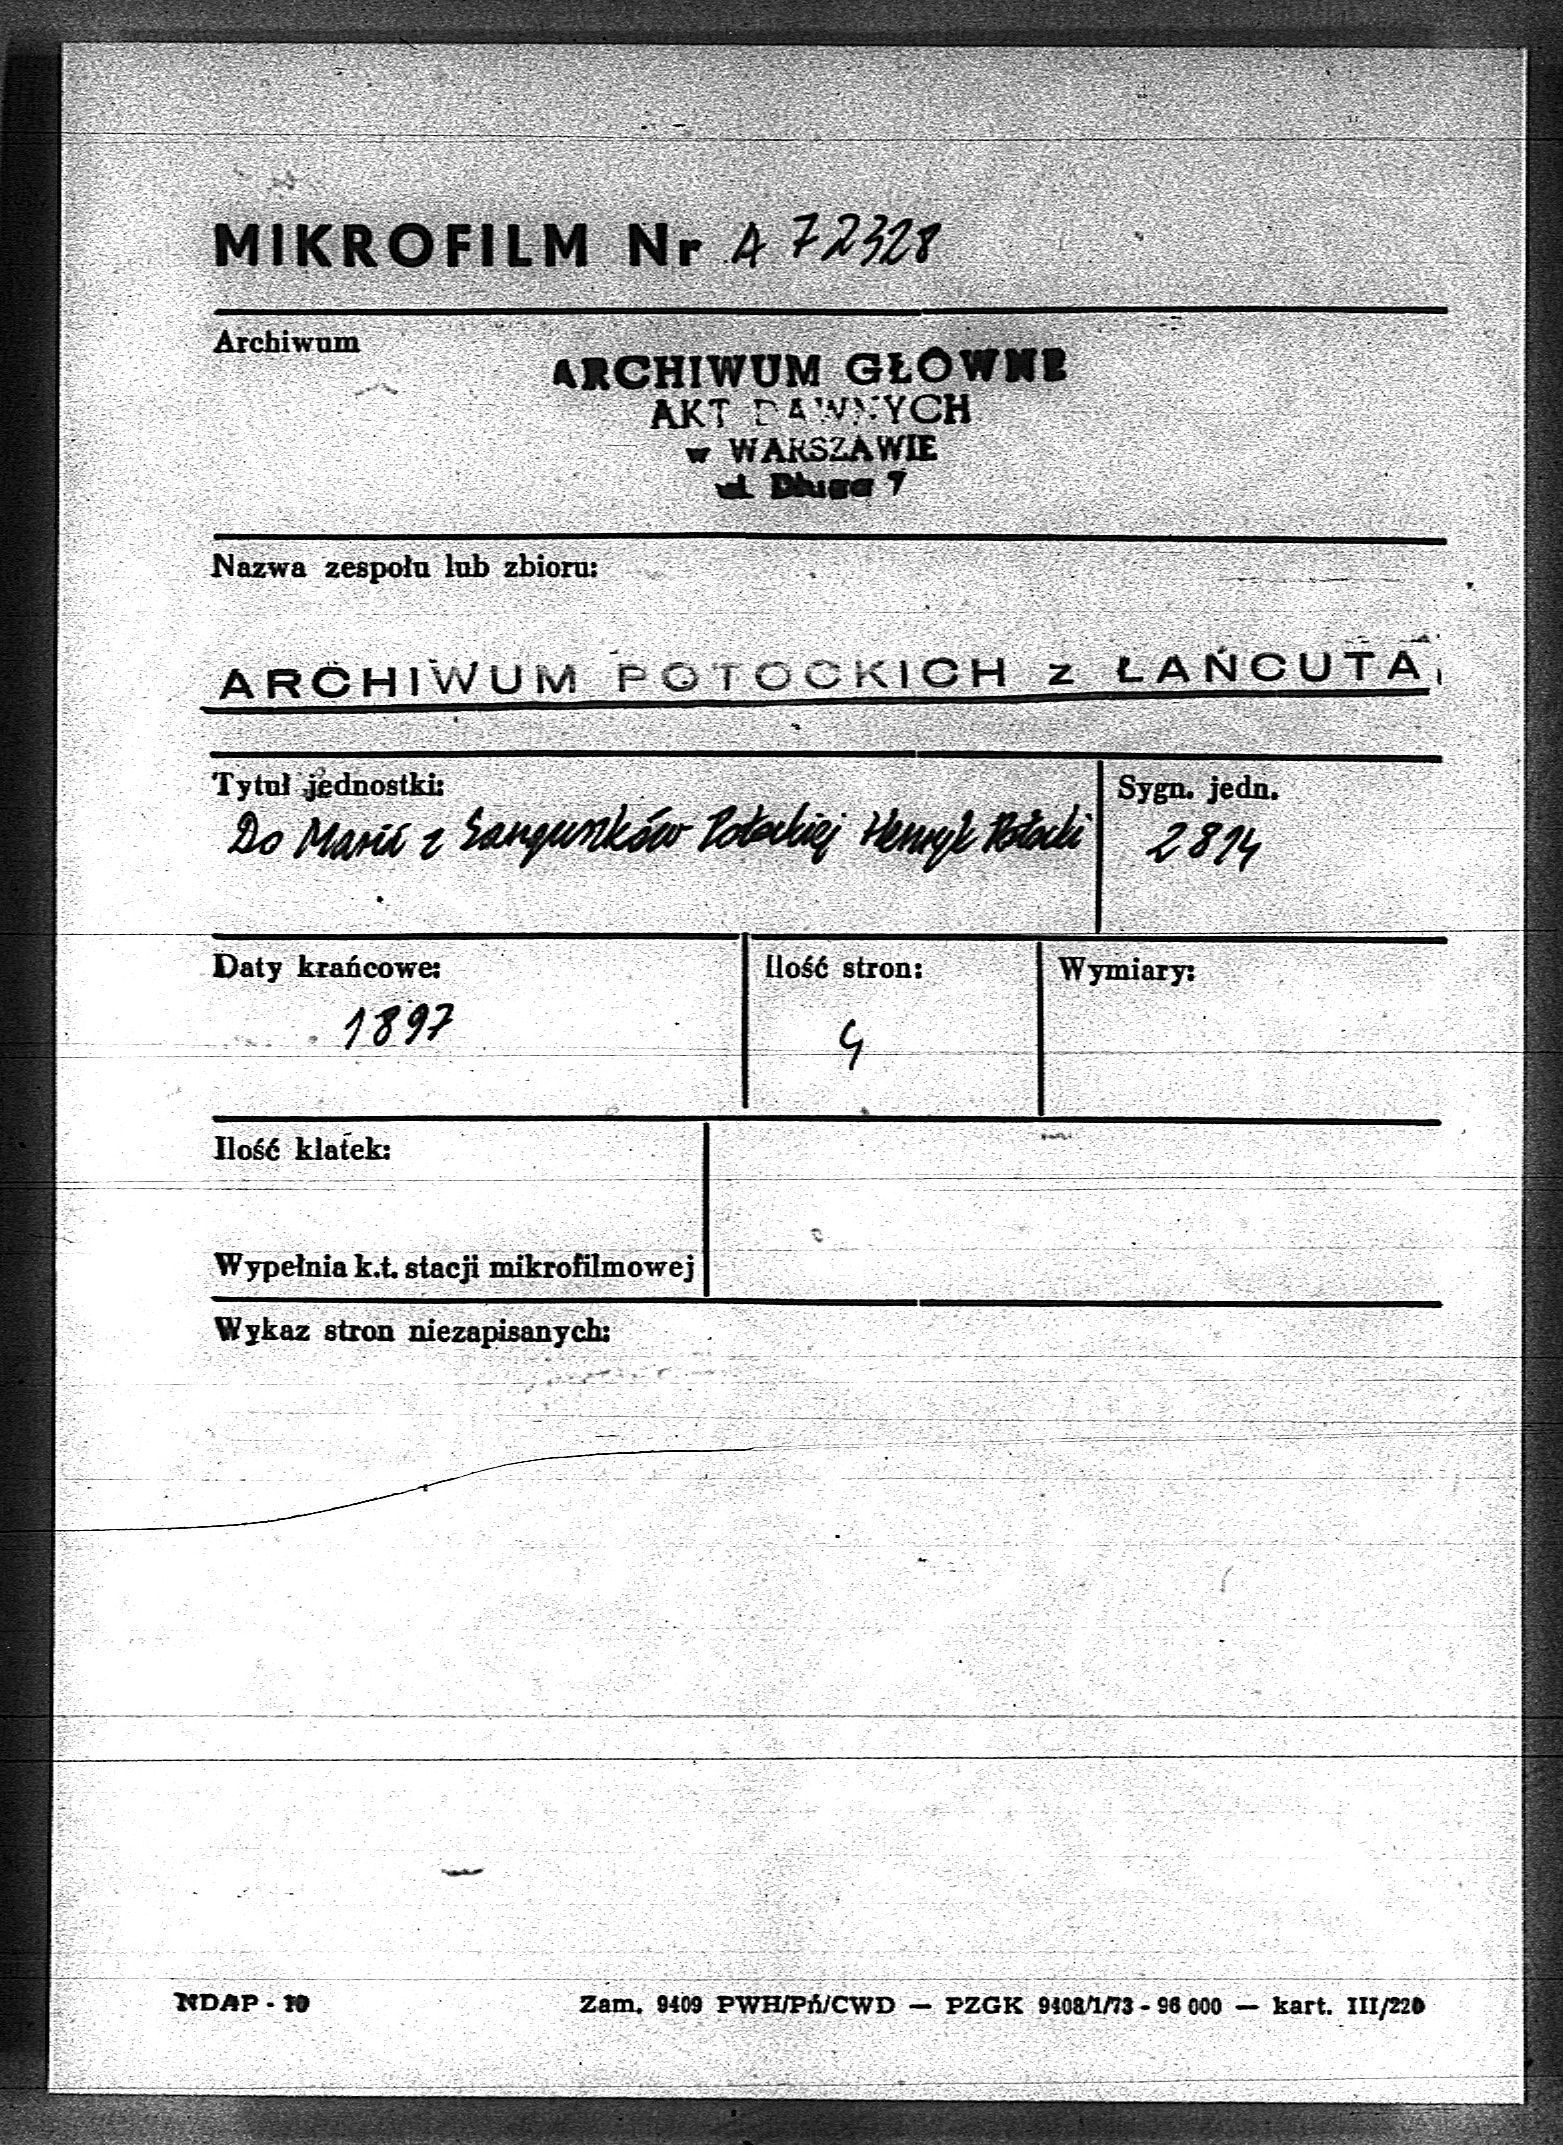 MIKROFILM Nr A 72328
Archiwum
ARCHIWUM GŁÓWNE
AKT DAWNYCH
w WARSZAWIE
ul. Długa 7
Nazwa zespołu lub zbioru:
ARCHIWUM POTOCKICH z ŁAŃCUTA
Tytuł jednostki:
Do Marii z Sanguszków Potockiej Henryk Potocki
Sygn. jedn.
2814
Daty krańcowe:
1897
Ilość stron:
4
Wymiary:
Ilość klatek:
Wypełnia k.t. stacji mikrofilmowej
Wykaz stron niezapisanych:
NDAP - 10
Zam. 9409 PWH/Pń/CWD — PZGK 9408/1/73 - 96 000 — kart. III/220